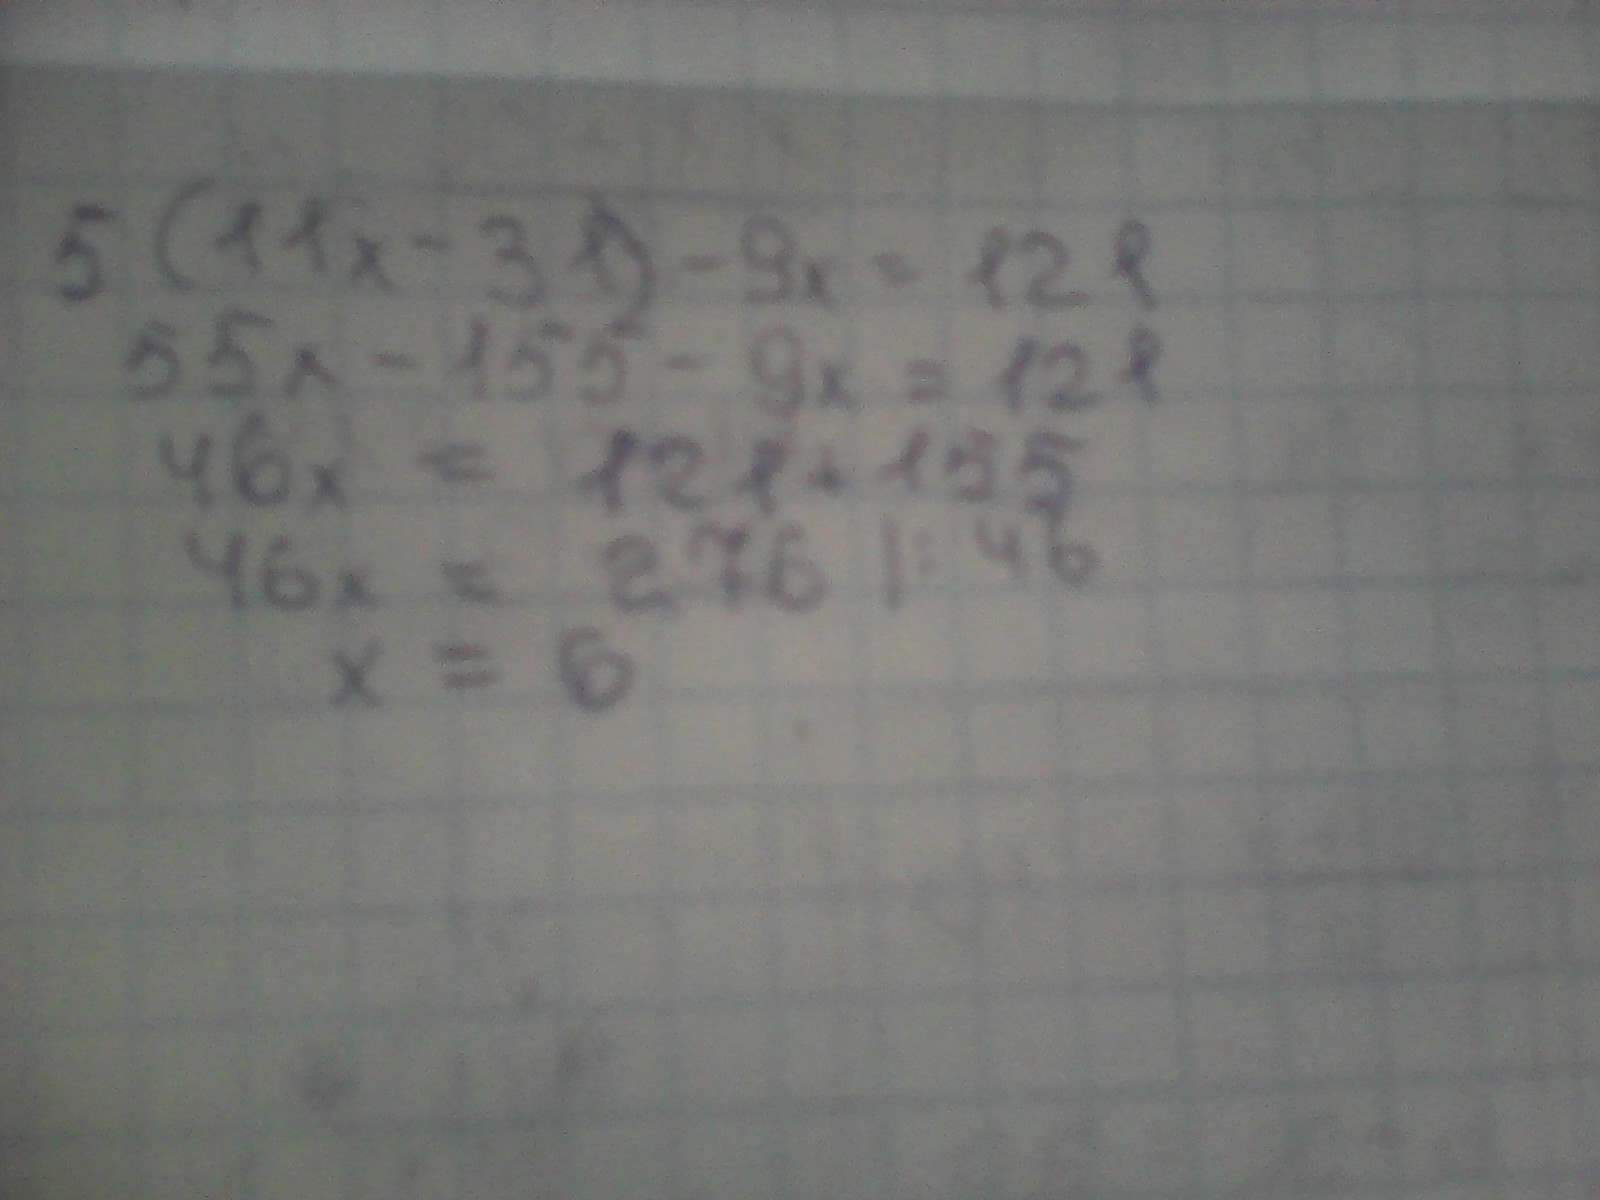 5(11x-31)-9x=121
55x-155-9x=121
46x=121+155
46x=276|:46
x=6